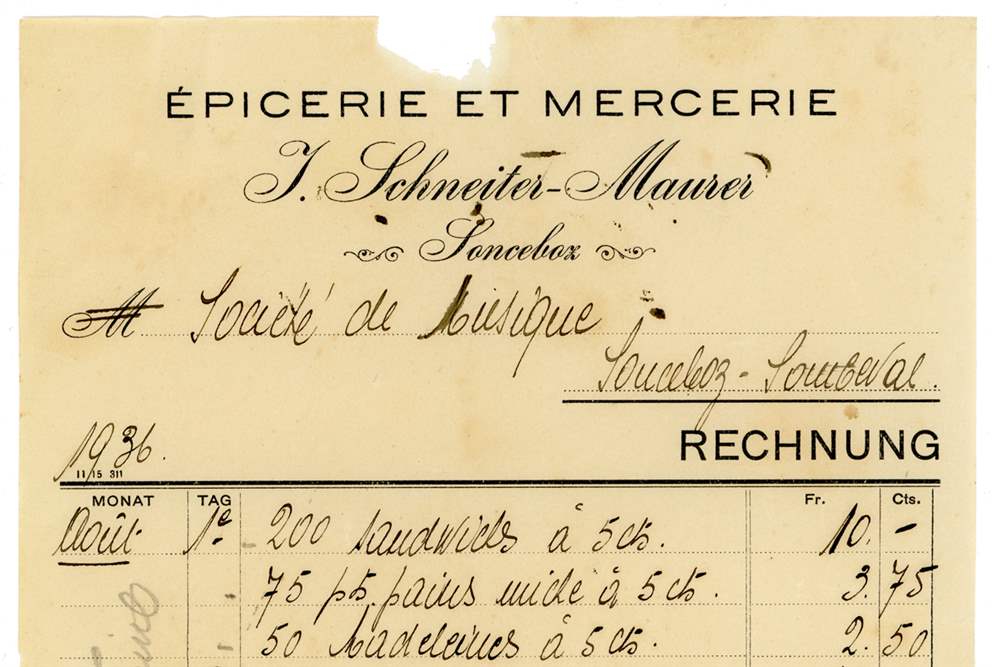 ÉPICERIE ET MERCERIE
J. Schneiter-Maurer
Sonceboz
M Société de Musique
Sonceboz-Sombeval.
1936.
RECHNUNG
11/15 311
MONAT TAG Fr. Cts.
Août 1e 200 sandwichs à 5 cts. 10. -
75 pts. pains mide à 5 cts. 3. 75
50 Madeleines à 5 cts. 2. 50